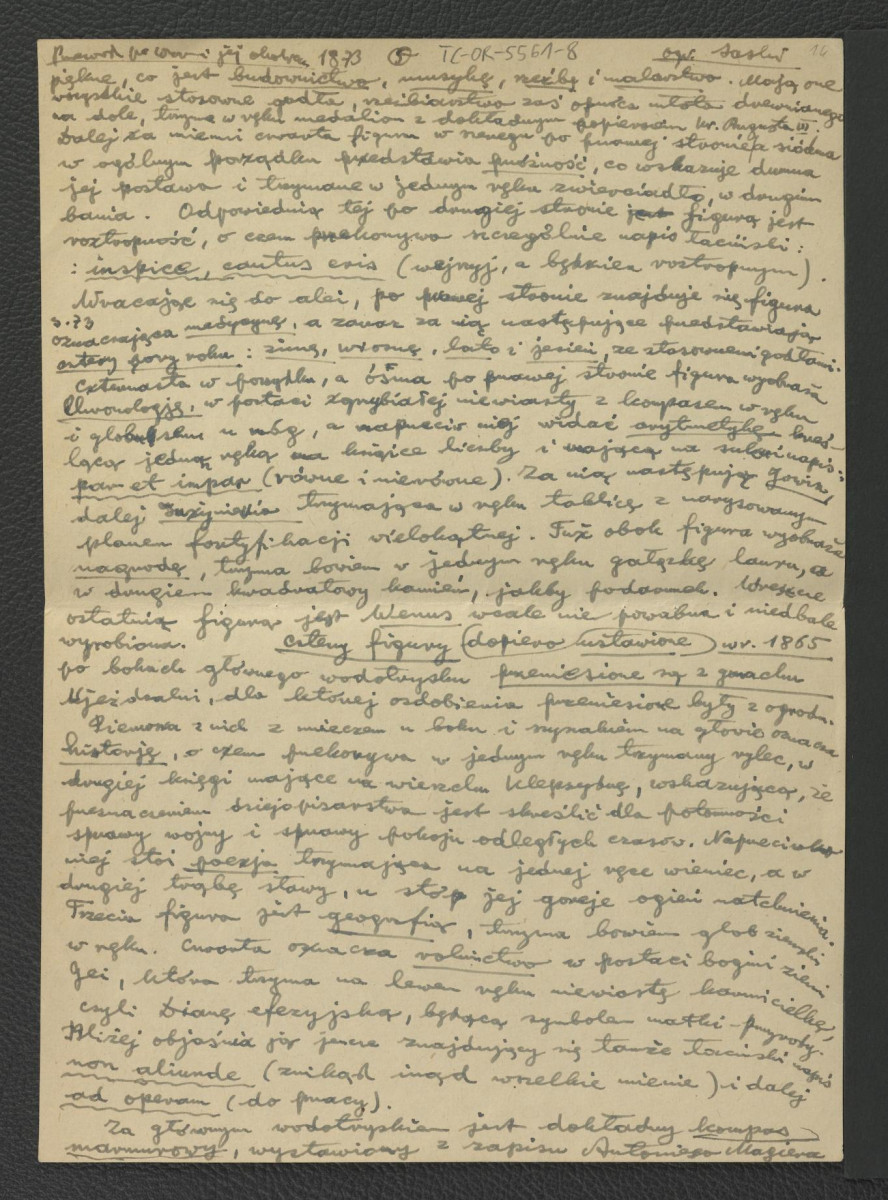 Przewod. po Warsz. i jej okolicy 1873 ⑤ TC-OR-5561-8 ogr. Saski 16
piękne, co jest budownictwo, muzykę, rzeźbę i malarstwo. Mają one
wszystkie stosowne godła, rzeźbiarstwo zaś oprócz młota drewnianego
na dole, trzyma w ręku medalion z dokładnym popiersiem kr. Augusta III.
Dalej za niemi czwarta figura w szeregu po prawej stronie, a siódma
w ogólnym porządku przedstawia próżność, co wskazuje dumna
jej postawa i trzymane w jednym ręku zwierciadło, w drugim
bania. Odpowiednią tej po drugiej stronie jest figurą jest
roztropność, o czem przekonywa szczególnie napis łaciński:
: inspice, cautus eris (wejrzyj, a będziesz roztropnym).
Wracając się do alei, po prawej stronie znajduje się figura
s. 73
oznaczająca medycynę, a zaraz za nią następujące przedstawiają
cztery pory roku: zimę, wiosnę, lato i jesień, ze stosownemi godłami.
Czternasta w porządku, a ósma po prawej stronie figura wyobraża
Chronologję, w postaci zgrzybiałej niewiasty z kompasem w ręku
i globusem u nóg, a naprzeciw niej widać arytmetykę kreś-
lącą jedną ręką na książce liczby i mającą na sukni napis:
par et impar (równe i nierówne). Za nią następują Jowisz,
dalej Inżynieria trzymająca w ręku tablicę z narysowanym
planem fortyfikacji wielokątnej. Tuż obok figura wyobraża
nagrodę, trzyma bowiem w jednym ręku gałązkę lauru, a
w drugiem kwadratowy kamień, jakby podarunek. Wreszcie
ostatnią figurą jest Wenus wcale nie powabna i niedbale
wyrobiona. Cztery figury (dopiero ustawione) w r. 1865
po bokach głównego wodotrysku przeniesione są z gmachu
Ujeżdżalni, dla której ozdobienia przeniesione były z ogrodu.
Pierwsza z nich z mieczem u boku i szyszakiem na głowie oznacza
historję, o czem przekonywa w jednym ręku trzymany rylec, w
drugiej księgi mające na wierzchu klepsydrę, wskazującą, że
przeznaczeniem dziejopisarstwa jest skreślić dla potomności
sprawy wojny i sprawy pokoju odległych czasów. Naprzeciwko
niej stoi poezja trzymająca na jednej ręce wieniec, a w
drugiej trąbę sławy, u stóp jej goreje ogień natchnienia.
Trzecia figura jest geografią, trzyma bowiem glob ziemski
w ręku. Czwarta oznacza rolnictwo w postaci bogini ziemi
Gei, która trzyma na lewem ręku niewiastę karmicielkę,
czyli Dianę efezyjską, będącą symbolem matki-przyrody.
Bliżej objaśnia ją jeszcze znajdujący się tamże łaciński napis
non aliunde (znikąd inąd wszelkie mienie) i dalej
ad operam (do pracy).
Za głównym wodotryskiem jest dokładny kompas
marmurowy, wystawiony z zapisu Antoniego Magiera